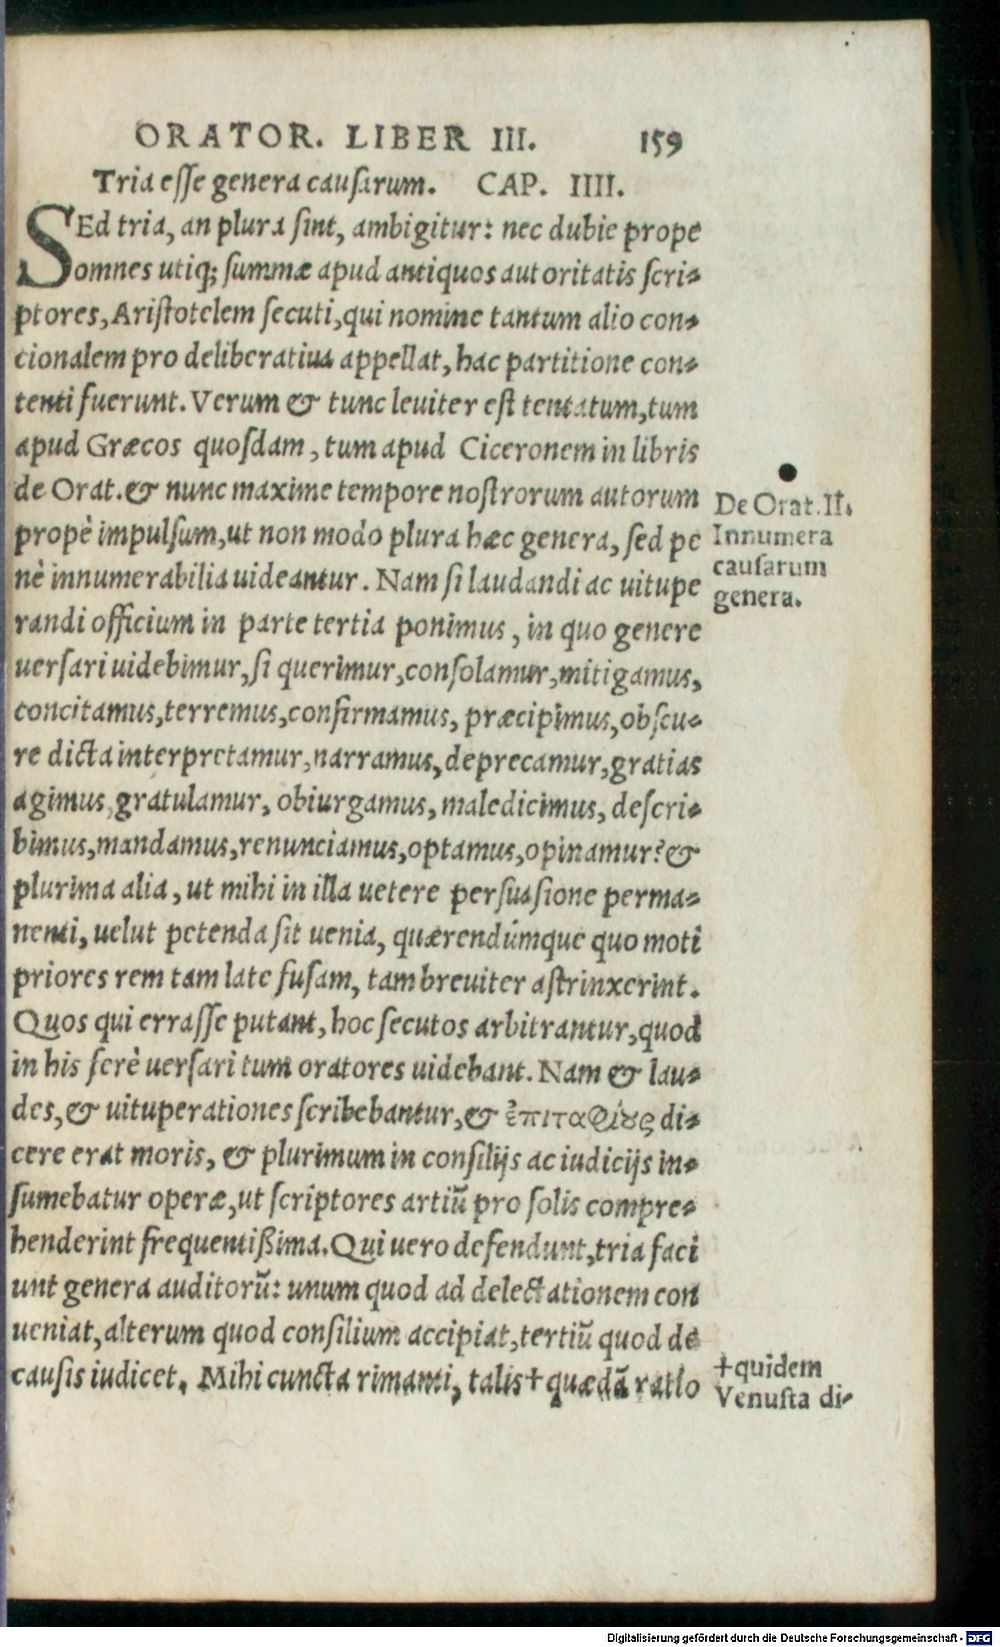 ORATOR. LIBER III. 159
Tria esse genera causarum. CAP. IIII.
SEd tria, an plura sint, ambigitur: nec dubie prope
omnes utiq; summæ apud antiquos autoritatis scri-
ptores, Aristotelem secuti, qui nomine tantum alio con-
cionalem pro deliberatiua appellat, hac partitione con-
tenti fuerunt. Verum & tunc leuiter est tentatum, tum
apud Græcos quosdam, tum apud Ciceronem in libris
de Orat. & nunc maxime tempore nostrorum autorum
propè impulsum, ut non modo plura hæc genera, sed pe
nè innumerabilia uideantur. Nam si laudandi ac uitupe
randi officium in parte tertia ponimus, in quo genere
uersari uidebimur, si querimur, consolamur, mitigamus,
concitamus, terremus, confirmamus, præcipimus, obscu-
re dicta interpretamur, narramus, deprecamur, gratias
agimus, gratulamur, obiurgamus, maledicimus, descri-
bimus, mandamus, renunciamus, optamus, opinamur? &
plurima alia, ut mihi in illa uetere persuasione perma-
nenti, uelut petenda sit uenia, quærendúmque quo moti
priores rem tam late fusam, tam breuiter astrinxerint.
Quos qui errasse putant, hoc secutos arbitrantur, quod
in his ferè uersari tum oratores uidebant. Nam & lau-
des, & uituperationes scribebantur, & ἐπιταφίους di-
cere erat moris, & plurimum in consilijs ac iudicijs in-
sumebatur operæ, ut scriptores artiũ pro solis compre-
henderint frequentißima. Qui uero defendunt, tria faci
unt genera auditorũ: unum quod ad delectationem con
ueniat, alterum quod consilium accipiat, tertiũ quod de
causis iudicet. Mihi cuncta rimanti, talis † quædã ratio
De Orat. II.
Innumera
causarum
genera.
† quidem
Venusta di-
Digitalisierung gefördert durch die Deutsche Forschungsgemeinschaft - DFG